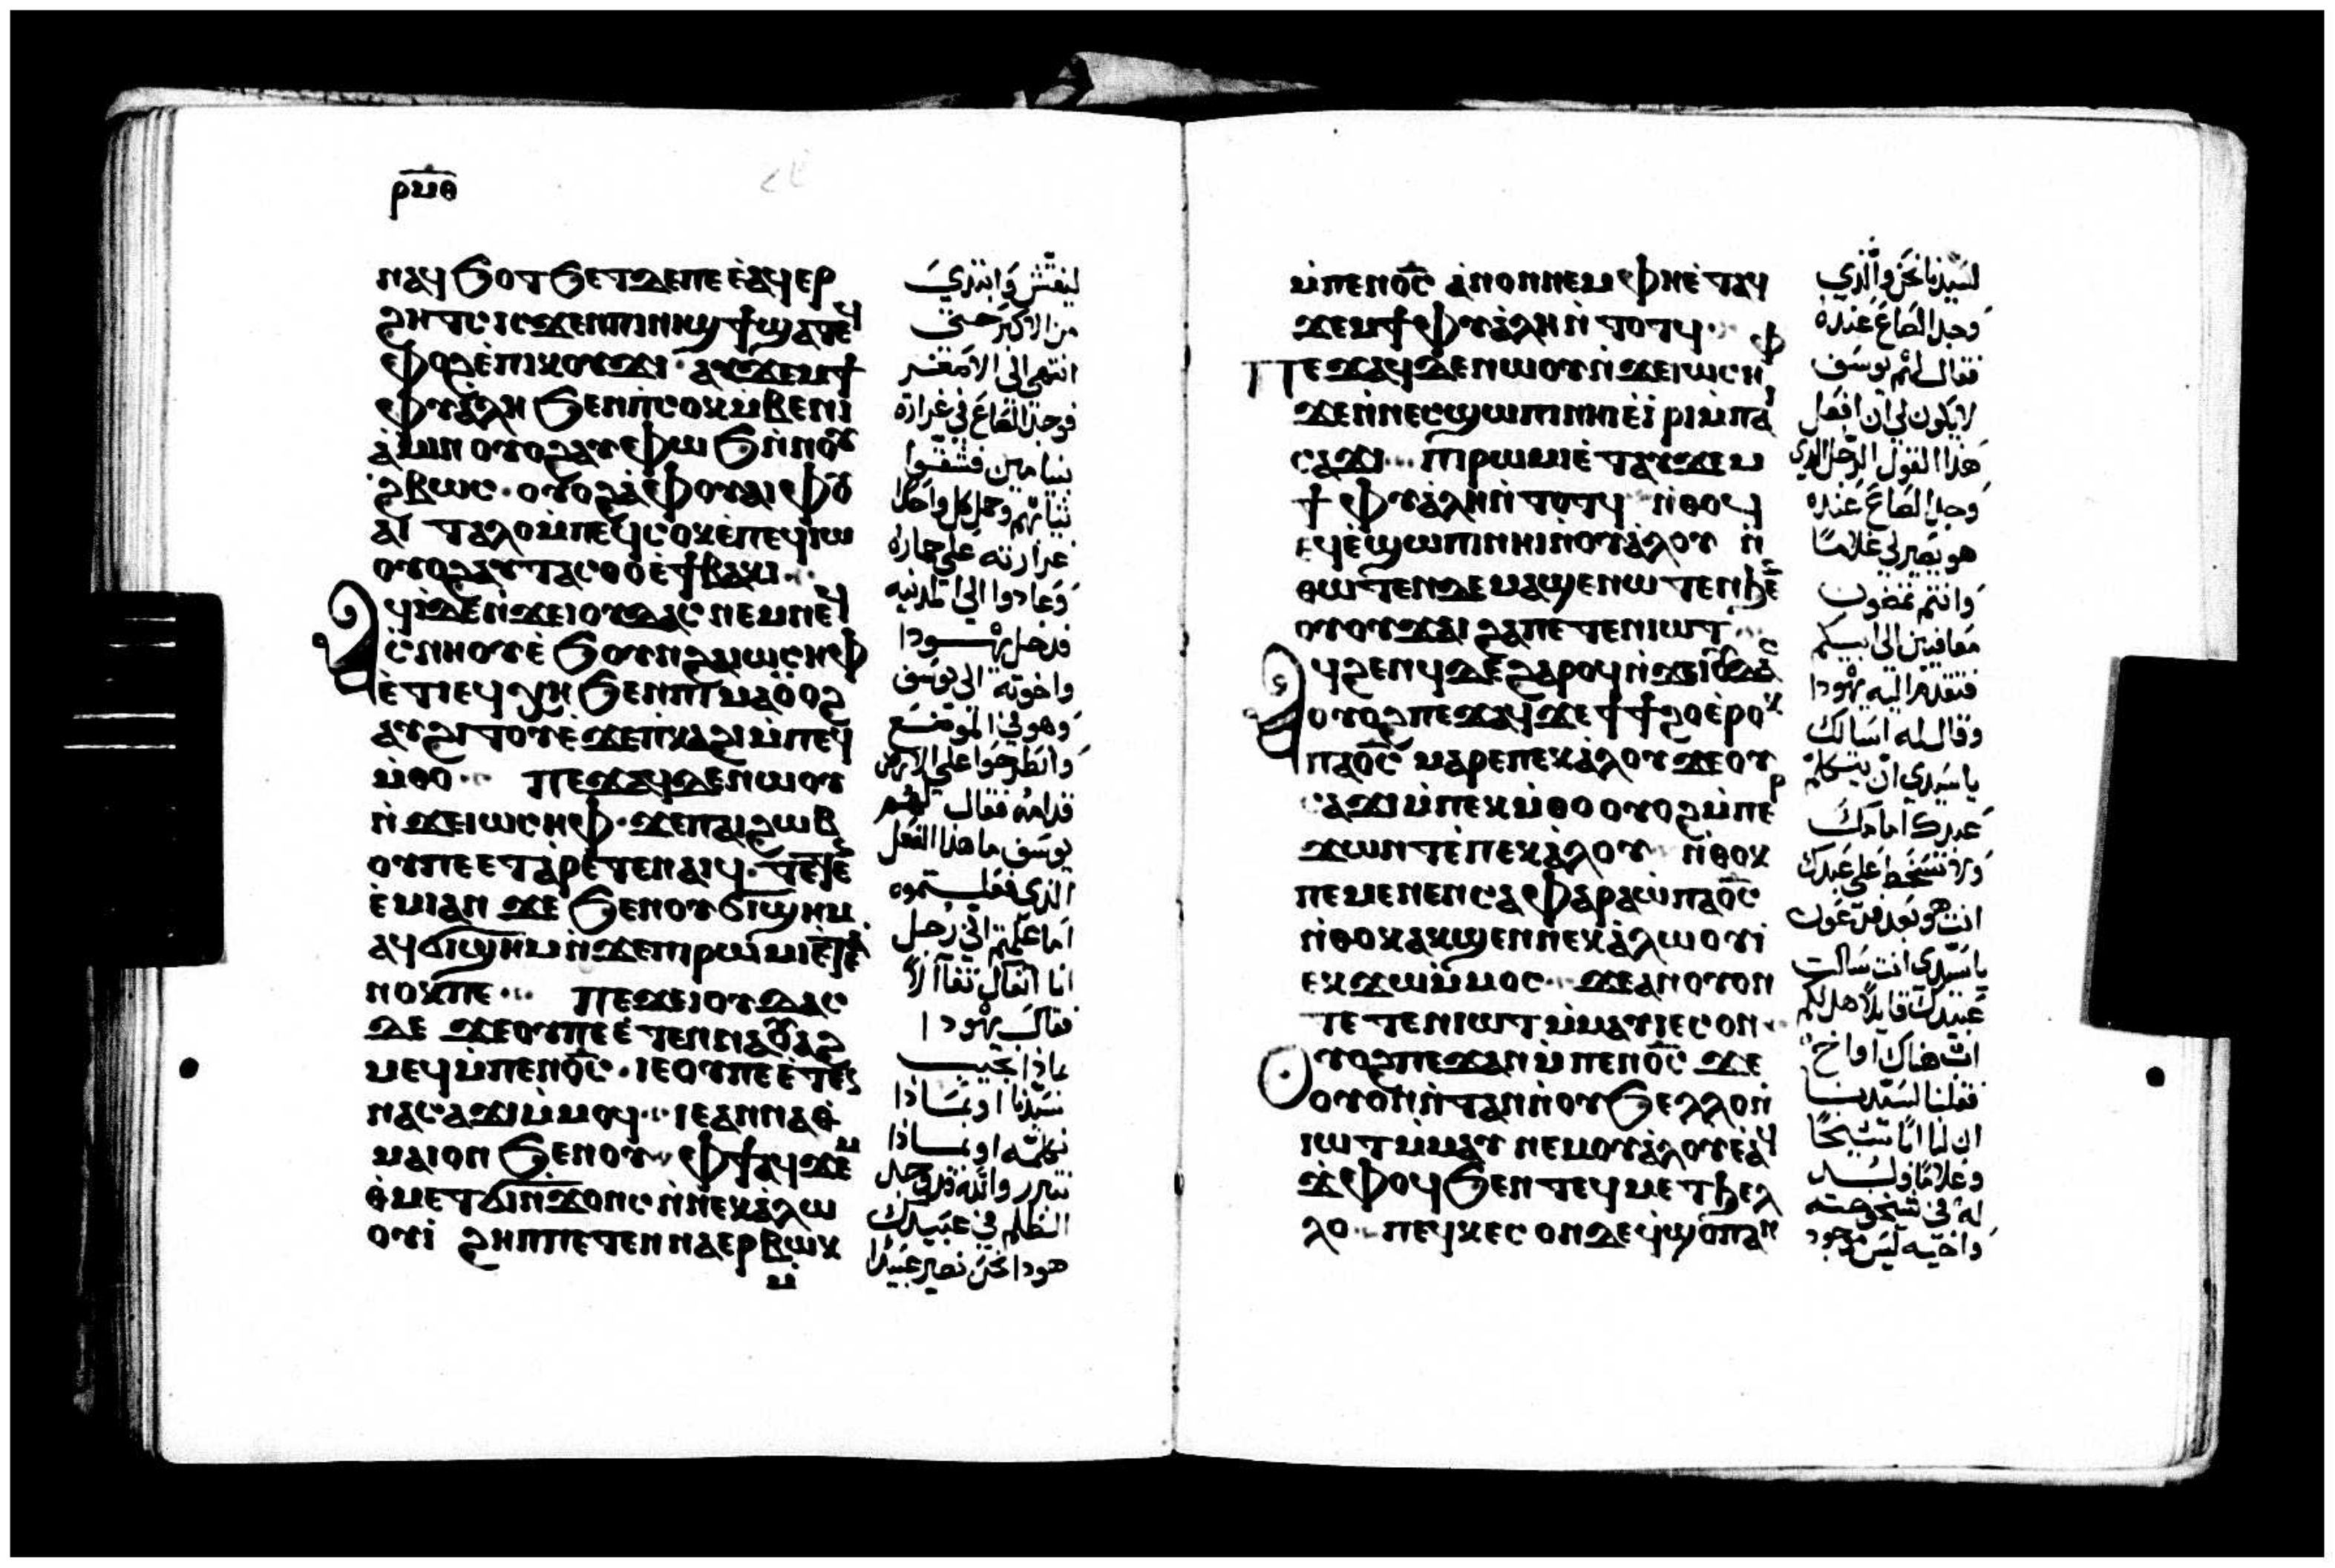 ⲣⲙⲑ
ⲛⲁϥϧⲟⲧϧⲉⲧϫⲉⲡⲉⲉ̀ⲁϥⲉⲣ
ϩⲏⲧⲥⲓⲥϫⲉⲛⲡⲓⲛⲓϣϯϣⲁⲧⲉϥ
ⲫⲟϩⲉ̀ⲡⲓⲕⲟⲩϫⲓ ⲁⲩϫⲉⲙϯ
ⲫⲩⲁ̀ⲗⲏ ϧⲉⲛⲡⲥⲟⲕⲙ̀ⲃⲉⲛⲓ
ⲁ̀ⲙⲓⲛ ⲟⲩⲟϩⲁⲩⲫⲱϧⲛ̀ⲛⲟⲩ
ϩⲃⲱⲥ· ⲟⲩⲟϩⲁ̀ⲫⲟⲩⲁⲓⲫⲟⲩ
ⲁⲓ ⲧⲁⲗⲟⲙ̀ⲡⲉϥⲥⲟⲕⲉ̀ⲡⲉϥⲓⲱ
ⲟⲩⲟϩⲁⲩⲧⲁⲥⲑⲟⲉ̀ϯⲃⲁⲕⲓ
ⲁϥⲓ̀ⲇⲉⲛ̀ϫⲉⲓⲟⲩⲇⲁⲥ ⲛⲉⲙⲛⲉϥ
ⲥ̀ⲛⲏⲟⲩⲉ̀ϧⲟⲩⲛϩⲁⲓⲱⲥⲏⲫ
ⲉ̀ⲧⲓⲉϥⲭⲏ ϧⲉⲛⲡⲓⲙⲁⲟ̀ⲟϩ
ⲁⲩϩⲓⲧⲟⲩⲉ̀ϫⲉⲛⲡ̀ⲕⲁϩⲓⲙ̀ⲡⲉϥ
ⲙ̀ⲑⲟ· ⲡⲉϫⲁϥⲇⲉⲛⲱⲟⲩ
ⲛ̀ϫⲉⲓⲱⲥⲏⲫ· ϫⲉⲡⲁⲓϩⲱⲃ
ⲟⲩⲡⲉⲉⲧⲁ̀ⲣⲉⲧⲉⲛⲁⲓϥ·
ⲉ̀ⲙⲓⲁⲛ ϫⲉ ϧⲉⲛⲟⲩϭⲓϣⲏⲙ
ⲁϥϭⲓϣⲏⲙⲛ̀ϫⲉⲡⲓⲣⲱⲙⲓⲉ̀ⲧⲉ
ⲛⲟⲕⲡⲉ· ⲡⲉϫⲉⲓⲟⲩⲇⲁⲥ
ⲇⲉ ϫⲉⲟⲩⲡⲉⲉ̀ⲧⲉⲛⲛⲁⲟⲩⲁϩ
ⲙⲉϥⲙ̀ⲡⲉⲛⲟ̅ⲥ̅· ⲓⲉⲟⲩⲡⲉⲉ̀ⲧⲉⲛ
ⲛⲁⲥⲁϫⲓⲙ̀ⲙⲟϥ· ⲓⲉⲁⲛⲛⲁⲑ
ⲙⲁⲓⲟⲛ ϧⲉⲛⲟⲩ ⲫϯⲁϥϫⲉⲙ
ⲑ̀ⲙⲉⲧϭⲓⲛ̀ϫⲟⲛⲥ ⲛ̀ⲛⲉⲕⲁ̀ⲗⲱ
ⲟⲩⲓ ϩⲏⲡⲡⲉⲧⲉⲛⲛⲁⲉⲣⲃⲱⲕ
ⲙ̀
ليفتش وابتدي
من الاكبر حتى
انتهى الى الاصغر
فوجد الصاع في غرارة
بنيامين فشقوا
ثيابهم وحمل كل واحد
غرارته على حماره
وعادوا الى المدينه
فدخل يهودا
واخوته الى يوسف
وهو في الموضع
وانطرحوا على الارض
قدامه فقال لهم
يوسف ما هذا الفعل
الذي فعلتموه
اما علمتم اني رجل
فقال يهودا
ماذا نجيب
سيدنا او بماذا
نكلمه او بماذا
نتبرر والله قد وجد
الظلم في عبيدك
هوذا نحن نصير عبيدا
ⲙ̀ⲡⲉⲛⲟ̅ⲥ̅ ⲁ̀ⲛⲟⲛⲛⲉⲙⲫⲏⲉ̀ⲧⲁⲩ
ϫⲉⲙϯⲫⲩⲁ̀ⲗⲏⲛ̀ⲧⲟⲧϥ
ⲡⲉϫⲁϥⲇⲉⲛⲱⲟⲩⲛ̀ϫⲉⲓⲱⲥⲏⲫ
ϫⲉⲛ̀ⲛⲉⲥϣⲱⲡⲓⲛⲏⲓⲉ̀ⲓⲣⲓⲙ̀ⲡⲁⲓ
ⲥⲁϫⲓ ⲡⲓⲣⲱⲙⲓⲉ̀ⲧⲁⲩϫⲉⲙ
ϯⲫⲩⲁ̀ⲗⲏⲛ̀ⲧⲟⲧϥ ⲛ̀ⲑⲟϥ
ⲉϥⲉ̀ϣⲱⲡⲓⲛⲏⲓⲛ̀ⲟⲩⲁ̀ⲗⲟⲩ ⲛ̀
ⲑⲱⲧⲉⲛⲇⲉⲙⲁϣⲉⲛⲱⲧⲉⲛϧⲉⲛ
ⲟⲩⲟⲩϫⲁⲓ ϩⲁⲡⲉⲧⲉⲛⲓⲱⲧ
ⲁϥϩⲉⲛϥⲇⲉϩⲁⲣⲟϥⲛ̀ϫⲉⲓⲟⲩⲇⲁⲥ
ⲟⲩⲟϩⲡⲉϫⲁϥϫⲉϯϯϩⲟⲉ̀ⲣⲟⲕ
ⲡⲁⲟ̅ⲥ̅ ⲙⲁⲣⲉⲡⲉⲕⲁ̀ⲗⲟⲩϫⲉⲟⲩ
ⲥⲁϫⲓⲙ̀ⲡⲉⲕⲙ̀ⲑⲟⲟⲩⲟϩⲙ̀ⲡⲉⲣ
ϫⲱⲛⲧⲉ̀ⲡⲉⲕⲁ̀ⲗⲟⲩ ⲛ̀ⲑⲟⲕ
ⲡⲉⲙⲉⲛⲉⲛⲥⲁⲫⲁⲣⲁⲱ̀ⲡⲁⲟ̅ⲥ̅
ⲛ̀ⲑⲟⲕⲁⲕϣⲉⲛⲛⲉⲕⲁ̀ⲗⲱⲟⲩⲓ
ⲉⲕϫⲱⲙ̀ⲙⲟⲥ ϫⲉⲁⲛⲟⲩⲟⲛ
ⲧⲉⲧⲉⲛⲓⲱⲧⲙ̀ⲙⲁⲩⲓⲉⲥⲟⲛ
ⲟⲩⲟϩⲡⲉϫⲁⲛⲙ̀ⲡⲉⲛⲟ̅ⲥ̅ ϫⲉ
ⲟⲩⲟⲛⲛ̀ⲧⲁⲛⲛ̀ⲟⲩϧⲉⲗⲗⲟⲛ̀
ⲓⲱⲧⲙ̀ⲙⲁⲩ ⲛⲉⲙⲟⲩⲁ̀ⲗⲟⲩⲉ̀ⲁϥ
ϫ̀ⲫⲟϥϧⲉⲛⲧⲉϥⲙⲉⲧϧⲉⲗ
ⲗⲟ ⲡⲉϥⲕⲉⲥⲟⲛⲇⲉϥ̀ϣⲟⲡⲁⲛ
لسيدنا نحن والذي
وجد الصاع عنده
فقال لهم يوسف
لا يكون لي ان افعل
هذا القول الرجل الذي
وجد الصاع عنده
هو يصير لي غلاما
وانتم تمضون
معافيين الى ابيكم
فتقدم اليه يهودا
وقال له اسالك
يا سيدي ان يتكلم
عبدك امامك
ولا تسخط على عبدك
انت هو بعد فرعون
يا سيدي انت سالت
عبيدك قايلا هل لكم
اب هناك او اخ
فقلنا لسيدنا
ان لنا ابا شيخا
وغلاما ولد
له في شيخوخته
واخيه ليس موجود